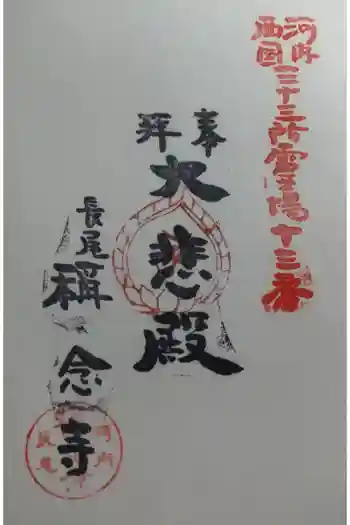 河内
西国
三十三所霊場十三番
奉拝
大悲殿
長尾
稱念寺